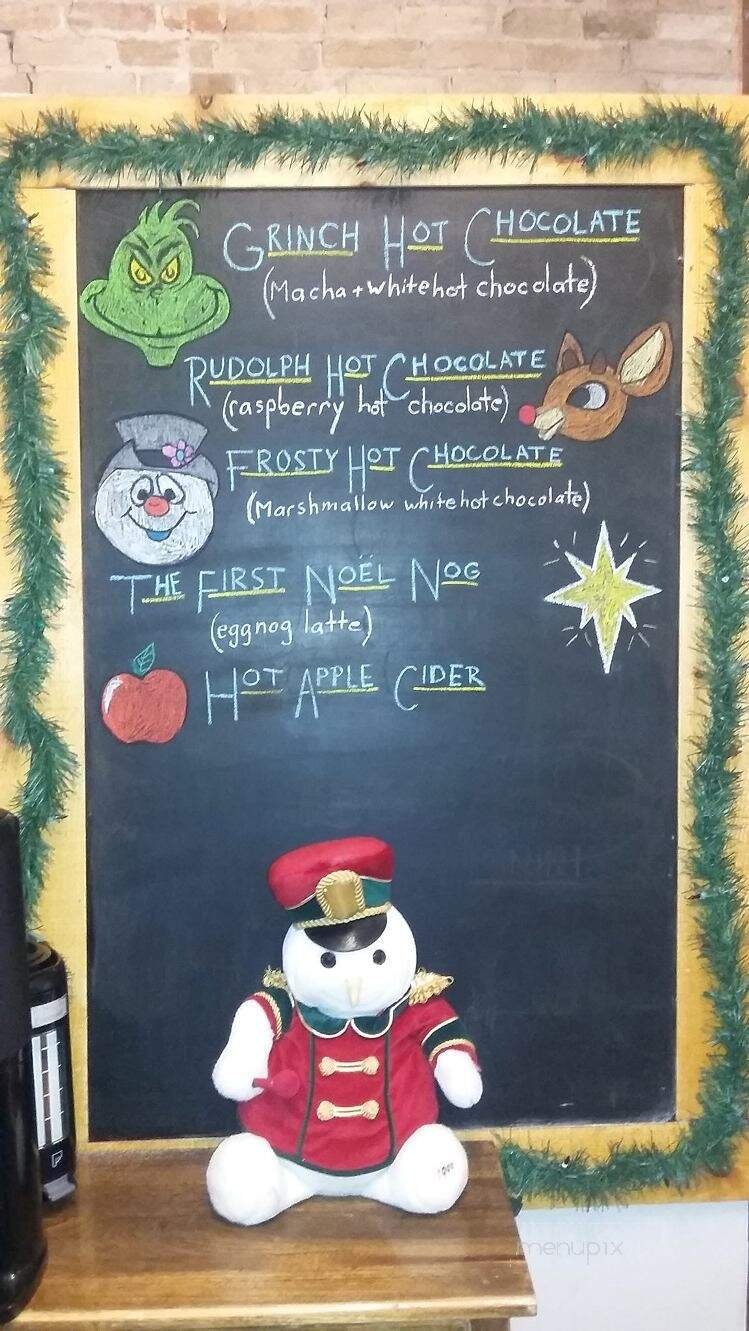 GRINCH HOT CHOCOLATE
(Macha + white hot chocolate)
RUDOLPH HOT CHOCOLATE
(raspberry hot chocolate)
FROSTY HOT CHOCOLATE
(Marshmallow white hot chocolate)
THE FIRST NOËL NOG
(eggnog latte)
HOT APPLE CIDER
menupix